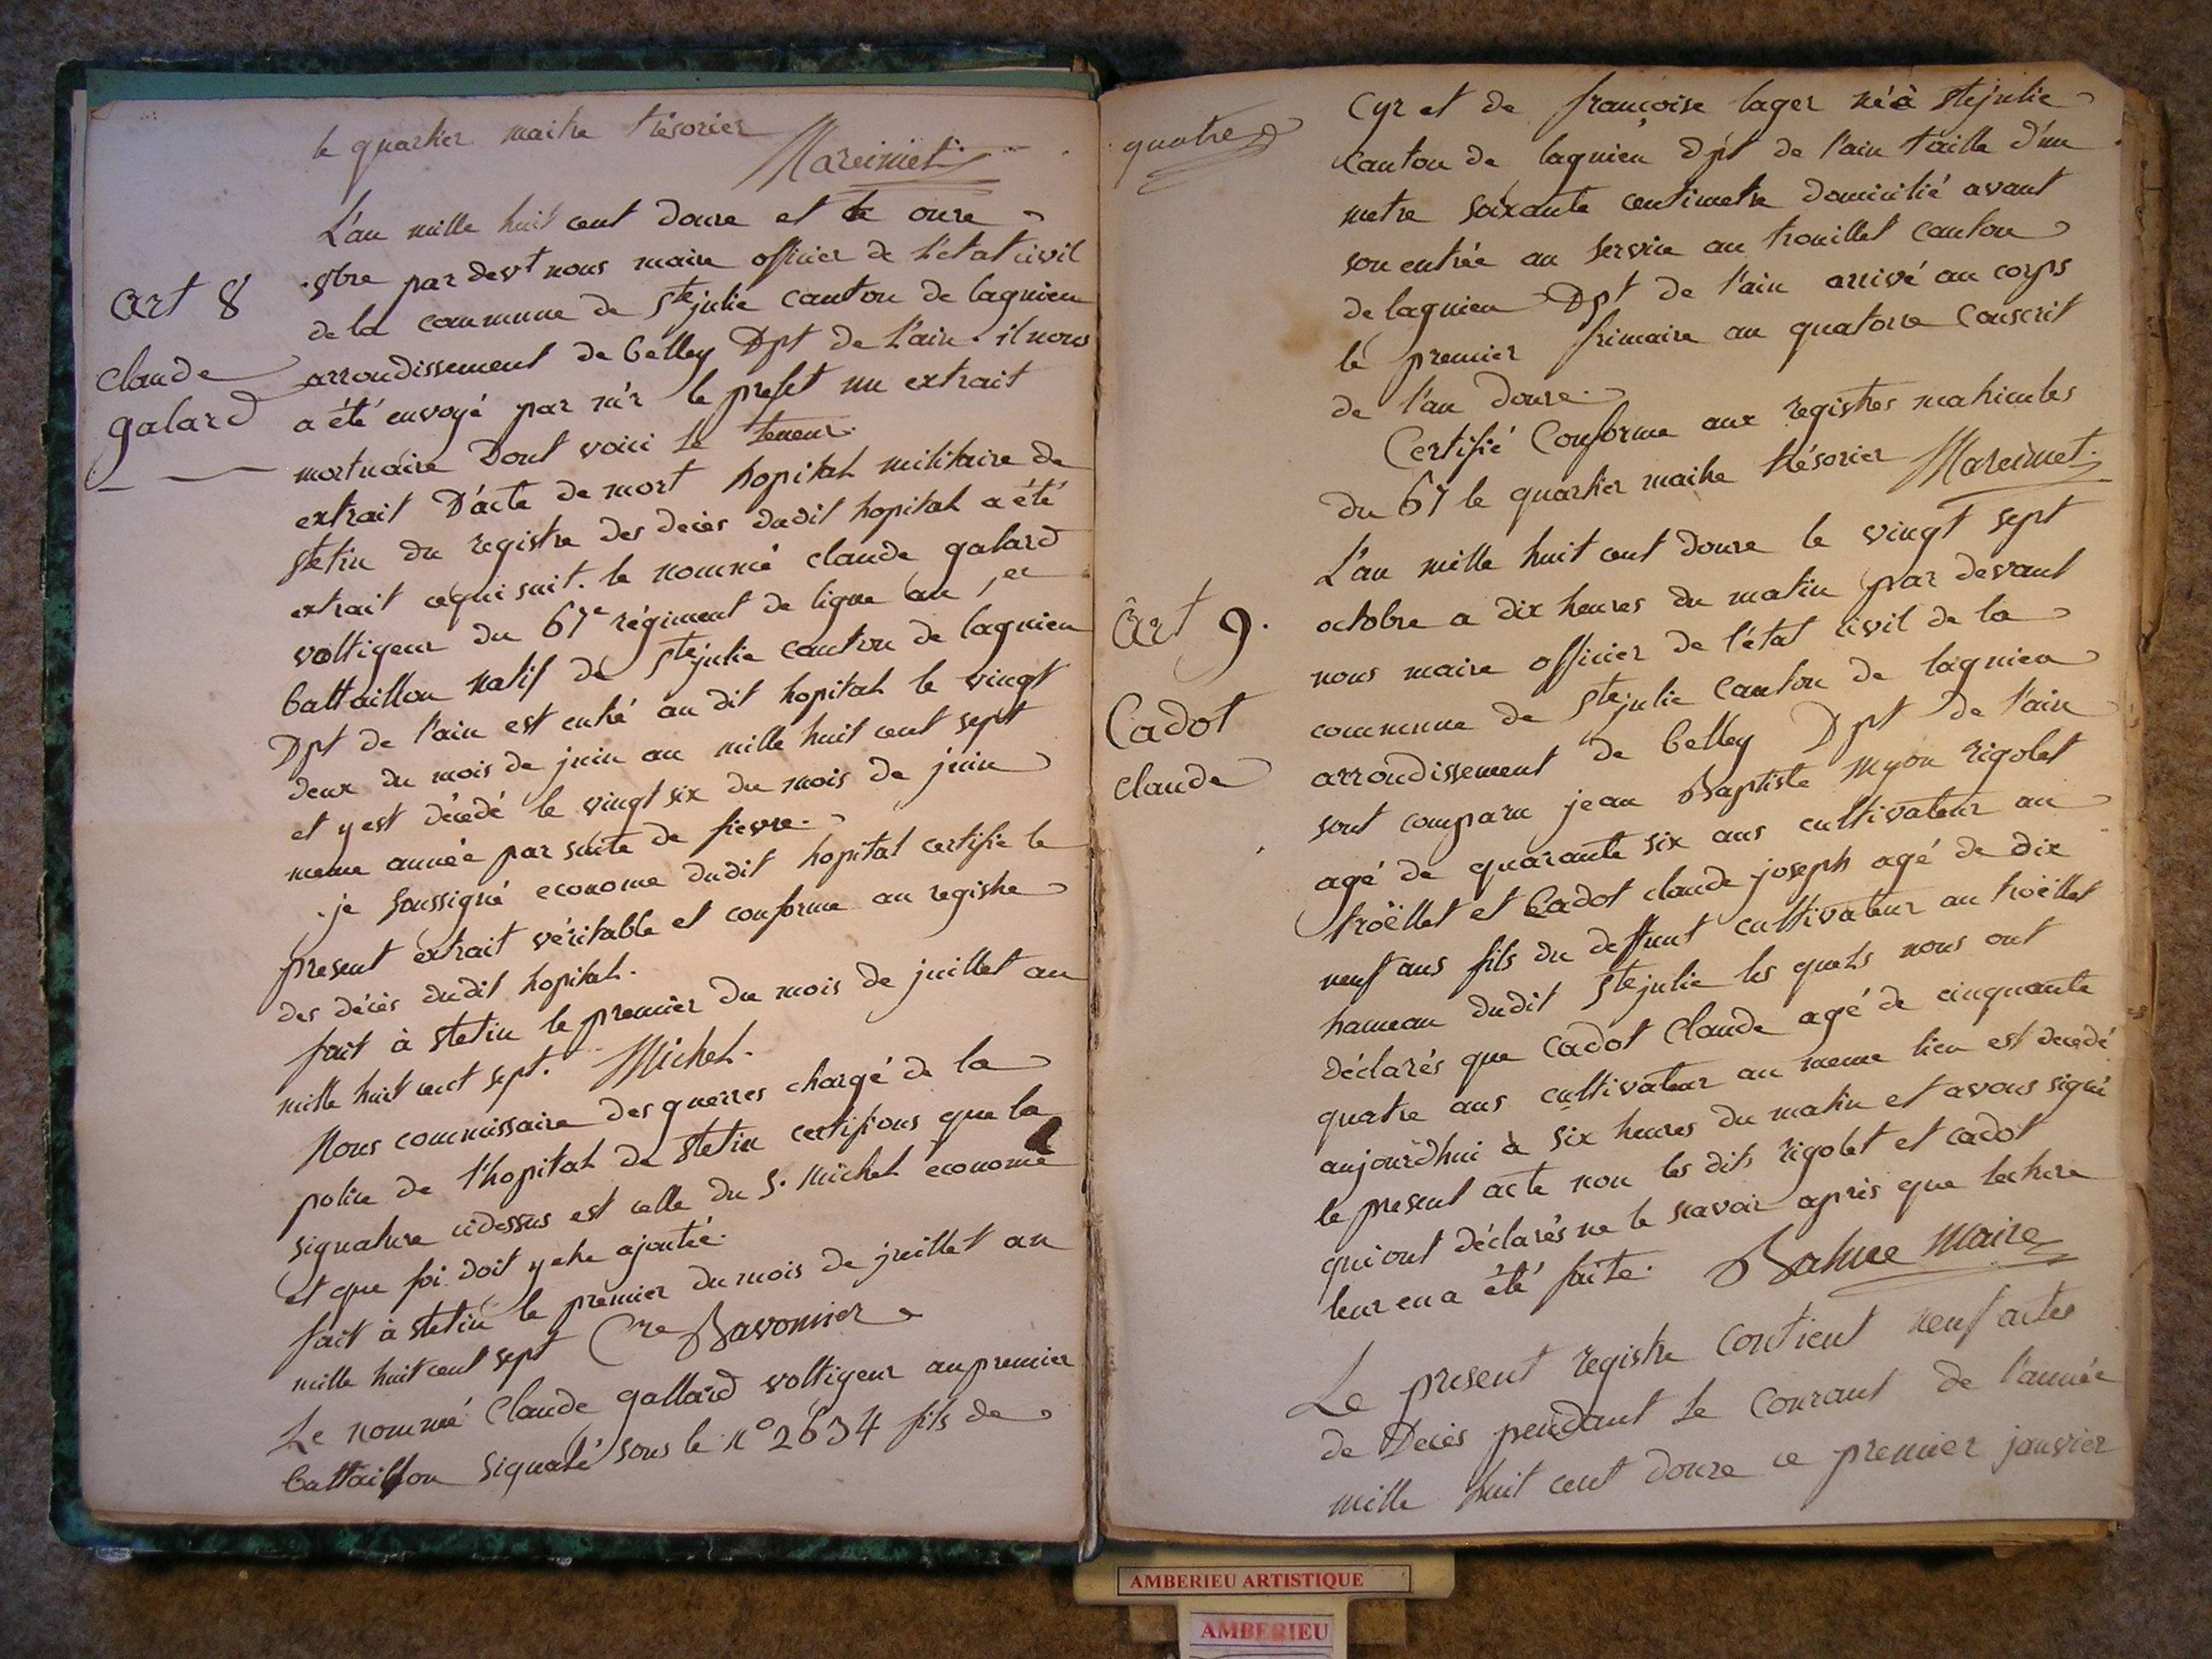 le quartier maitre trésorier
Mareimet
L'an mille huit cent douze et le onze
9bre par devt nous maire officier de l'état civil
art 8
de la commune de ste julie canton de lagnieu
arrondissement de belley Dpt de L'ain. il nous
claude
galard
a été envoyé par m'r le prefet un extrait
mortuaire Dont voici le teneur.
extrait D'acte de mort hopital militaire de
stetin du registre des decès dudit hopital a été
extrait cequi suit. le nommé claude galard
voltigeur du 67e régiment de ligne au 1er
battaillon natif de ste julie canton de lagnieu
Dpt de l'ain est entré au dit hopital le vingt
deux du mois de juin an mille huit cent sept
et y est décédé le vingt six du mois de juin
meme année par suite de fievre.
je soussigné econome dudit hopital certifie le
present extrait véritable et conforme au registre
des décès dudit hopital.
fait à stetin le premier du mois de juillet an
mille huit cent sept. Michel.
Nous commissaire des guerres chargé de la
police de l'hopital de stetin certifions que la
signature cidessus est celle du S. Michel econome
et que foi doit y etre ajoutée.
fait à stetin le premier du mois de juillet an
mille huit cent sept Cre Bavonnier
Le nommé Claude gallard voltigeur au premier
battaillon signalé sous le n° 2634 fils de
quatre
Cyr et de françoise lager né à ste julie
canton de lagnieu dpt de l'ain taille d'un
metre soixante centimetre domicilié avant
son entrée au service au trouillet canton
de lagnieu Dpt de l'ain arrivé au corps
le premier frimaire an quatorze Conscrit
de l'an douze.
Certifié Conforme aux registres matricules
du 67 le quartier maitre trésorier Mareimet.
L'an mille huit cent douze le vingt sept
art 9.
octobre a dix heures du matin par devant
nous maire officier de l'état civil de la
Cadot
claude
commune de ste julie canton de lagnieu
arrondissement de belley Dpt de l'ain
sont comparu jean Baptiste Myon rigolet
agé de quarante six ans cultivateur au
troëllet et Cadot claude joseph agé de dix
neuf ans fils du deffunt cultivateur au troëllet
hameau dudit ste julie les quels nous ont
déclarés que Cadot Claude agé de cinquante
quatre ans cultivateur au meme lieu est decedé
aujourdhui à six heures du matin et avons signé
le present acte non les dits rigolet et cadot
qui ont déclarés ne le scavoir apris que lecture
leur en a été faite. Maire
Le present registre contient neuf actes
de Decès pendant le Courant de l'année
mille huit cent douze ce premier janvier
AMBERIEU ARTISTIQUE
AMBERIEU